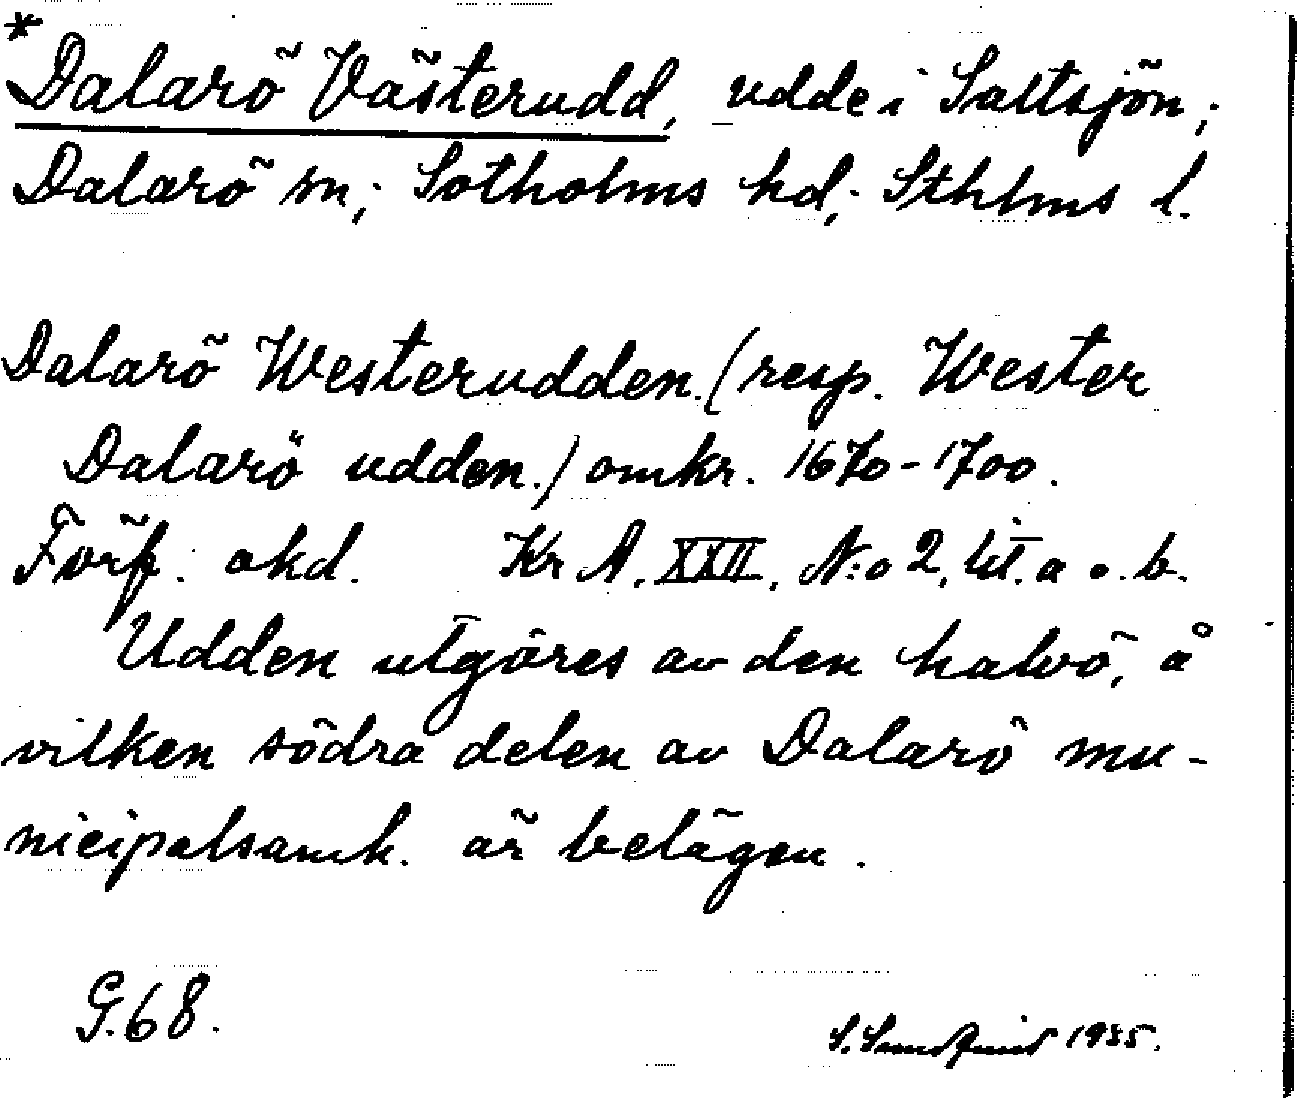 *Dalarö Västerudd, udde i Saltsjön;
Dalarö sn; Sotholms hd; Sthlms l.
Dalarö Westerudden. (resp. Wester
Dalarö udden.) omkr. 1670-1700.
Förf. okd. Kr A. XXII. N:o 2, lit. a o. b.
Udden utgöres av den halvö, å
vilken södra delen av Dalarö mu-
nicipalsamh. är belägen.
G.68.
S. 1935.